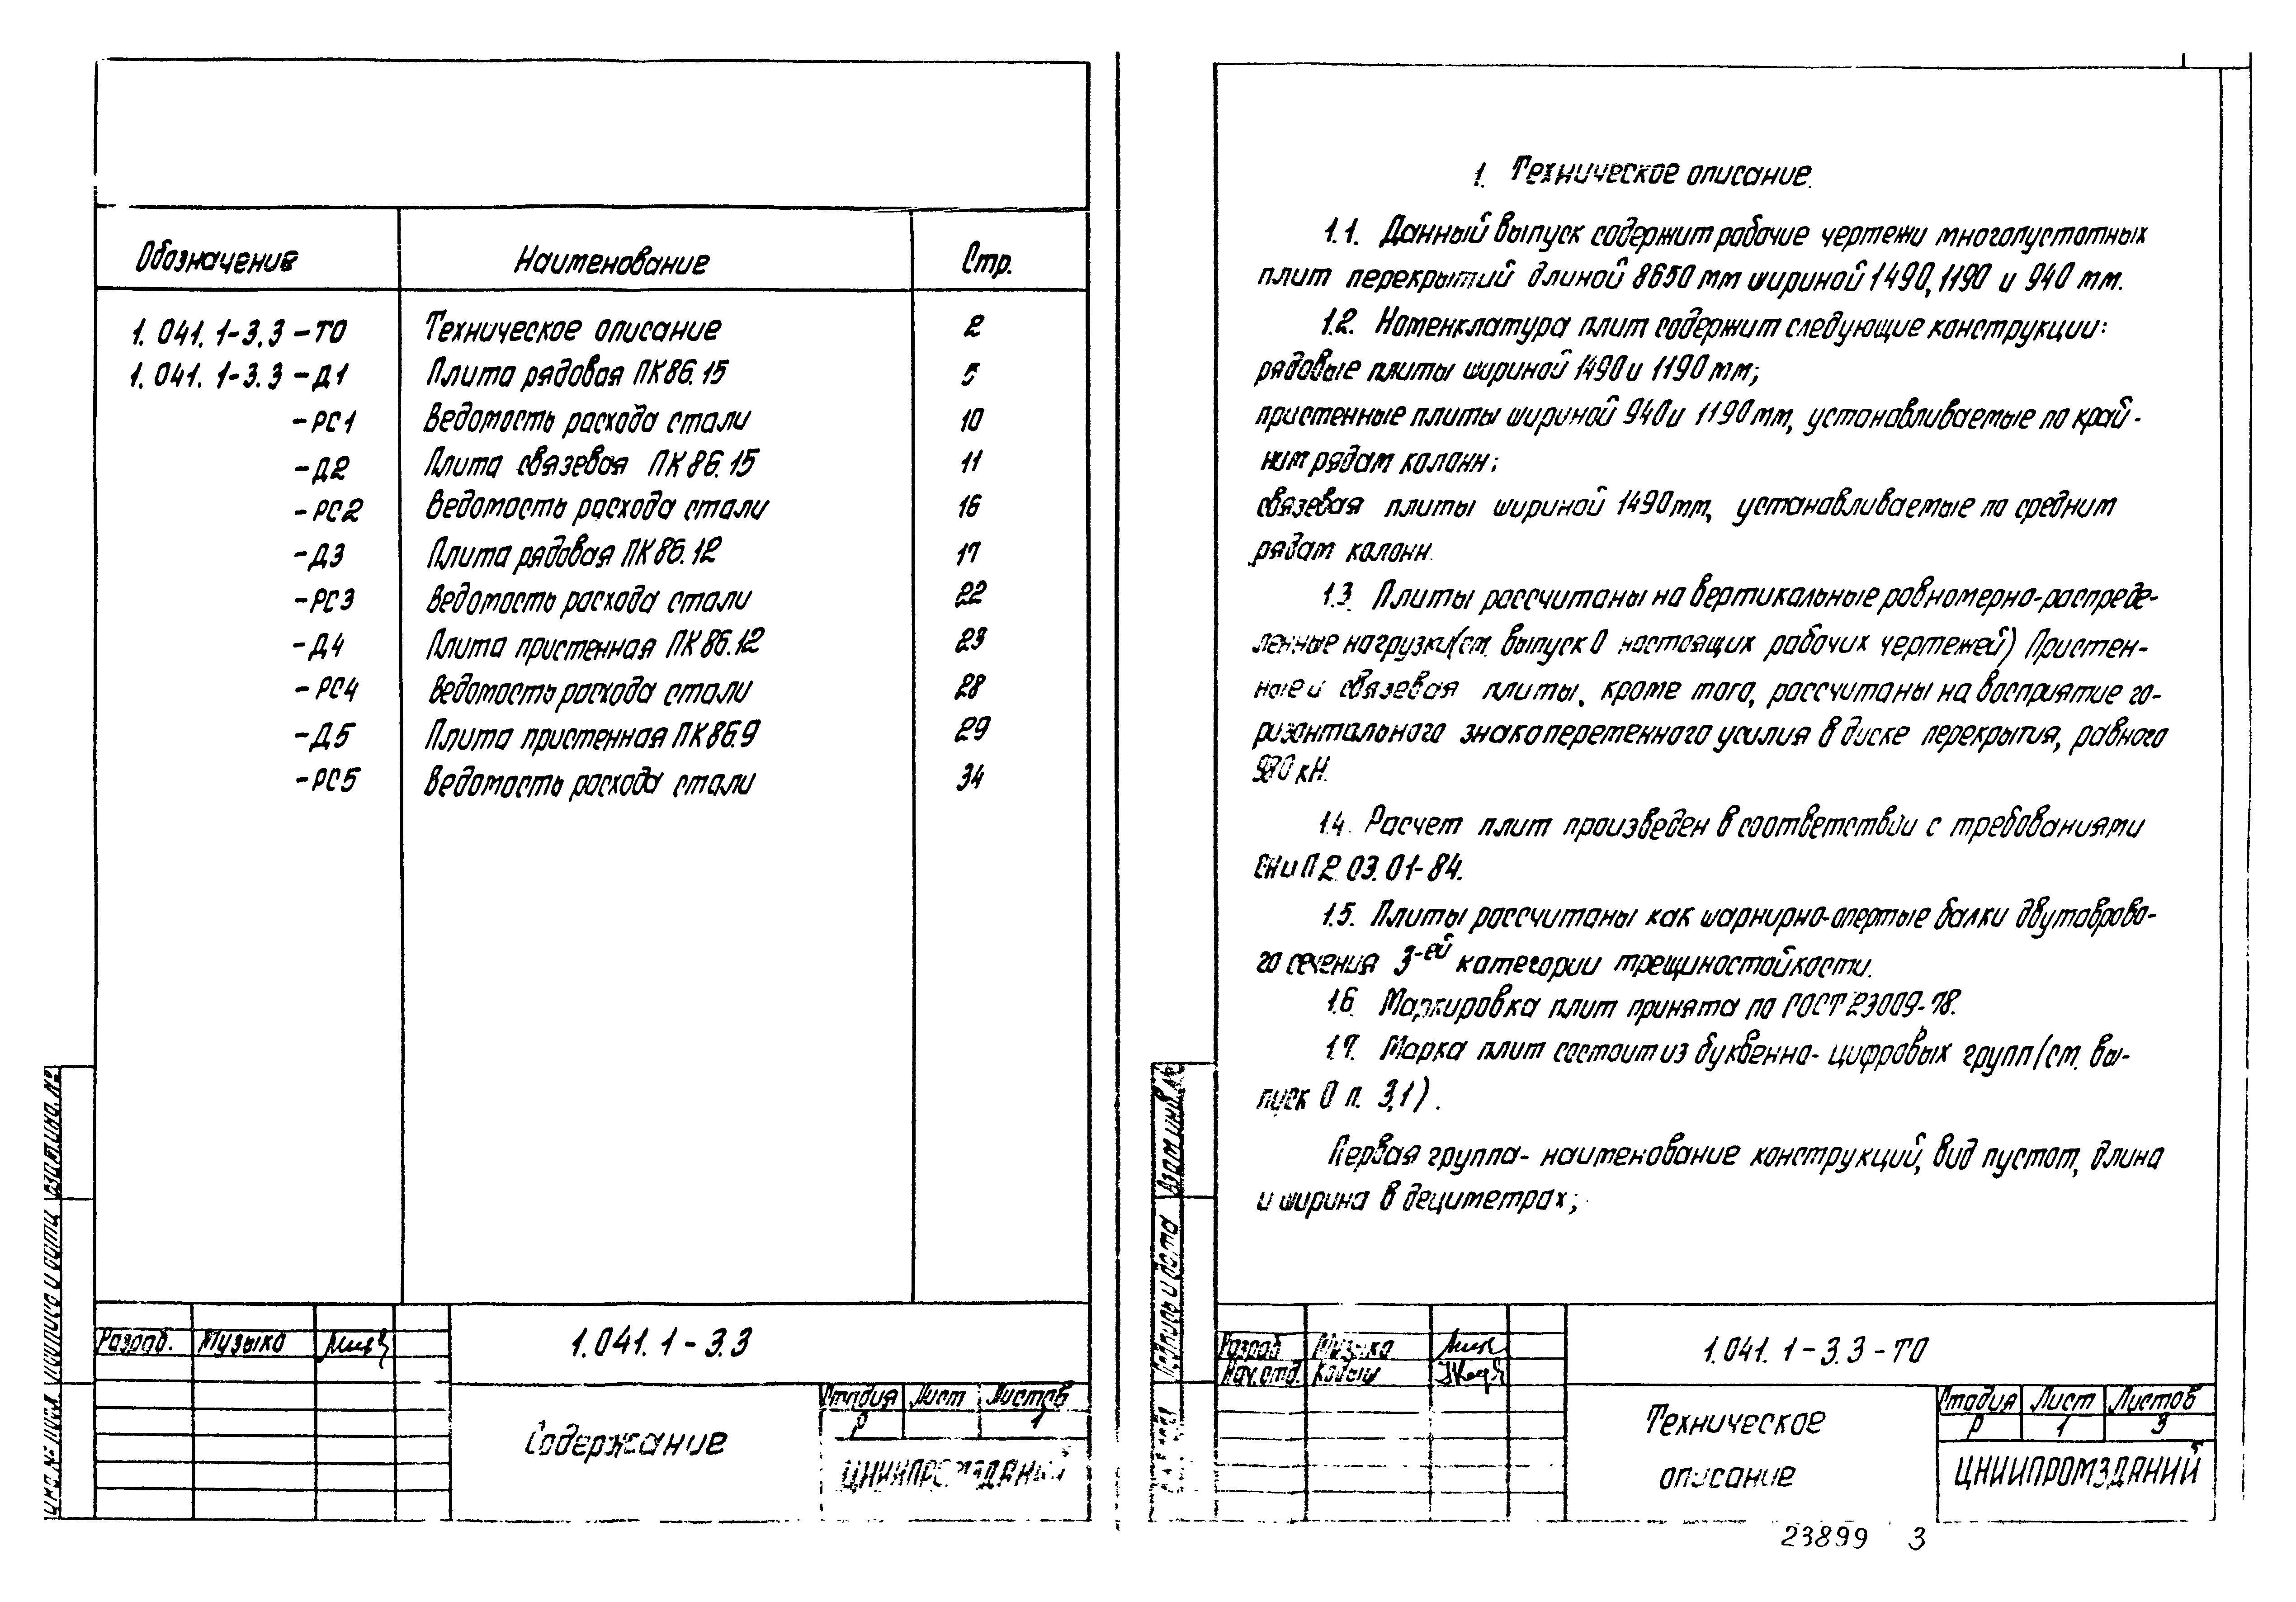 Обозначение Наименование Стр.
1.041.1-3.3-ТО Техническое описание 2
1.041.1-3.3-Д1 Плита рядовая ПК86.15 5
-РС1 Ведомость расхода стали 10
-Д2 Плита связевая ПК86.15 11
-РС2 Ведомость расхода стали 16
-Д3 Плита рядовая ПК86.12 17
-РС3 Ведомость расхода стали 22
-Д4 Плита пристенная ПК86.12 23
-РС4 Ведомость расхода стали 28
-Д5 Плита пристенная ПК86.9 29
-РС5 Ведомость расхода стали 34
Разраб. Музыка
1.041.1-3.3
Содержание
Стадия Лист Листов
Р 1
ЦНИИПРОМЗДАНИЙ
Подпись и дата
1. Техническое описание.
1.1. Данный выпуск содержит рабочие чертежи многопустотных
плит перекрытий длиной 8650 мм шириной 1490, 1190 и 940 мм.
1.2. Номенклатура плит содержит следующие конструкции:
рядовые плиты шириной 1490 и 1190 мм;
пристенные плиты шириной 940 и 1190 мм, устанавливаемые по край-
ним рядам колонн;
связевая плиты шириной 1490 мм, устанавливаемые по средним
рядам колонн.
1.3. Плиты рассчитаны на вертикальные равномерно-распреде-
ленные нагрузки (см. выпуск 0 настоящих рабочих чертежей) Пристен-
ные и связевая плиты, кроме того, рассчитаны на восприятие го-
ризонтального знакопеременного усилия в диске перекрытия, равного
кН.
1.4. Расчет плит произведен в соответствии с требованиями
СНиП 2.03.01-84.
1.5. Плиты рассчитаны как шарнирно-опертые балки двутаврово-
го сечения 3-ей категории трещиностойкости.
1.6. Маркировка плит принята по ГОСТ 23009-78.
1.7. Марка плит состоит из буквенно-цифровых групп (см. вы-
пуск 0 п. 3,1).
Первая группа- наименование конструкций, вид пустот, длина
и ширина в дециметрах;
Взам.инв.№
Подпись и дата
Разраб Музыка
Нач.отд.
1.041.1-3.3-ТО
Техническое
описание
Стадия Лист Листов
Р 1 3
ЦНИИПРОМЗДАНИЙ
23899 3